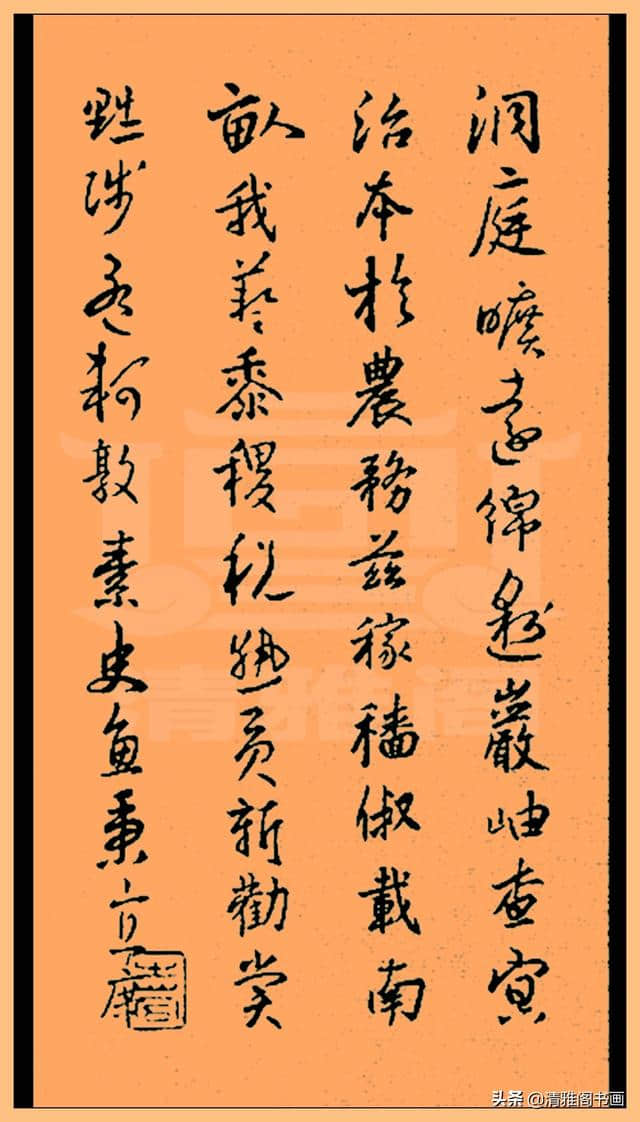 洞庭曠遠綿邈巖岫杳冥
治本於農務茲稼穡俶載南
畝我藝黍稷稅熟貢新勸賞
黜陟孟軻敦素史魚秉直庶
清雅阁
头条 @清雅阁书画